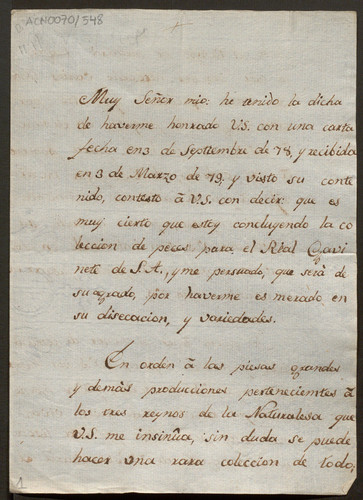 ACN0070/548
Muy Señor mio: he tenido la dicha
de haverme honrado V.S. con una carta
fecha en 3 de Septiembre de 78, y recibida
en 3 de Marzo de 79, y visto su conte
nido, contesto â V.S. con decir: que es
muy cierto que estoy concluyendo la co
leccion de peces para el Real Gavi
nete de S.A., y me persuado, que serà de
su agrado, por haverme es merado en
su disecacion, y variedades.
En orden â las piesas grandes
y demàs producciones pertenecientes â
los tres reynos de la Naturalesa que
V.S. me insinûa, sin duda se puede
hacer una rara coleccion de todo;
1